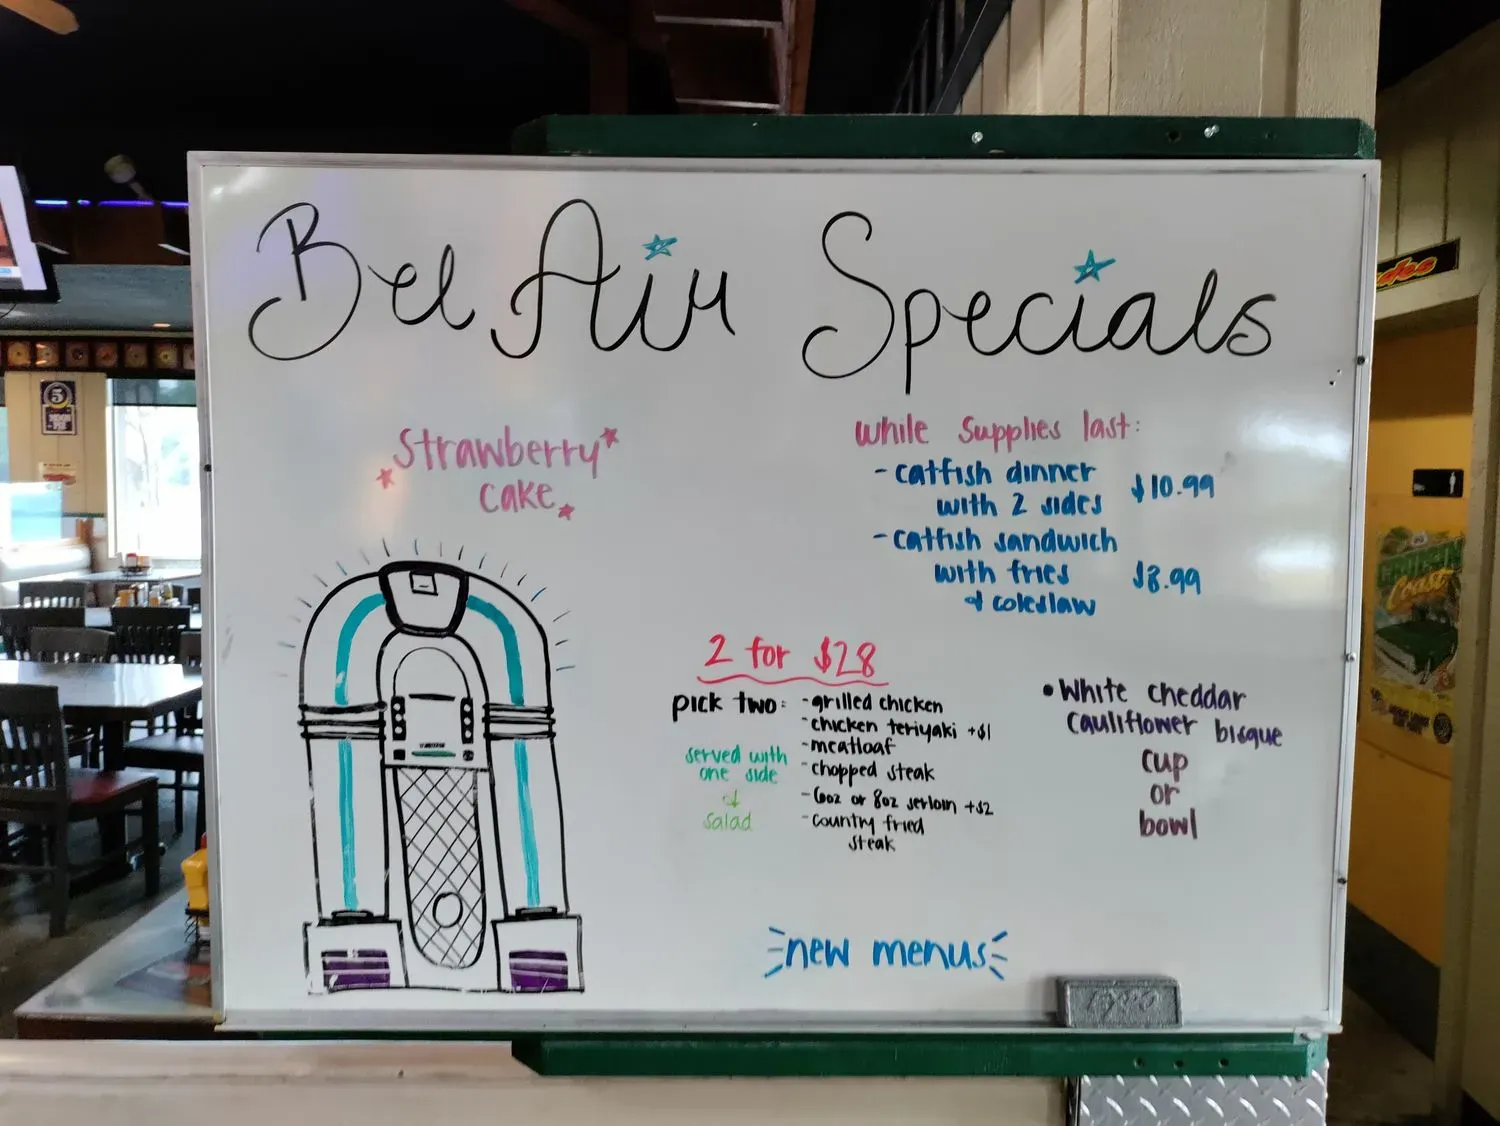 Bel Air Specials
Strawberry
cake
While supplies last:
- catfish dinner
with 2 sides $10.99
- catfish sandwich
with fries $8.99
& coleslaw
2 for $28
pick two:
- grilled chicken
- chicken teriyaki +$1
- meatloaf
- chopped steak
- 6oz or 8oz serloin +$2
- country fried
steak
served with
one side
&
salad
• White cheddar
cauliflower bisque
cup
or
bowl
new menus
EXPO
5
Coast